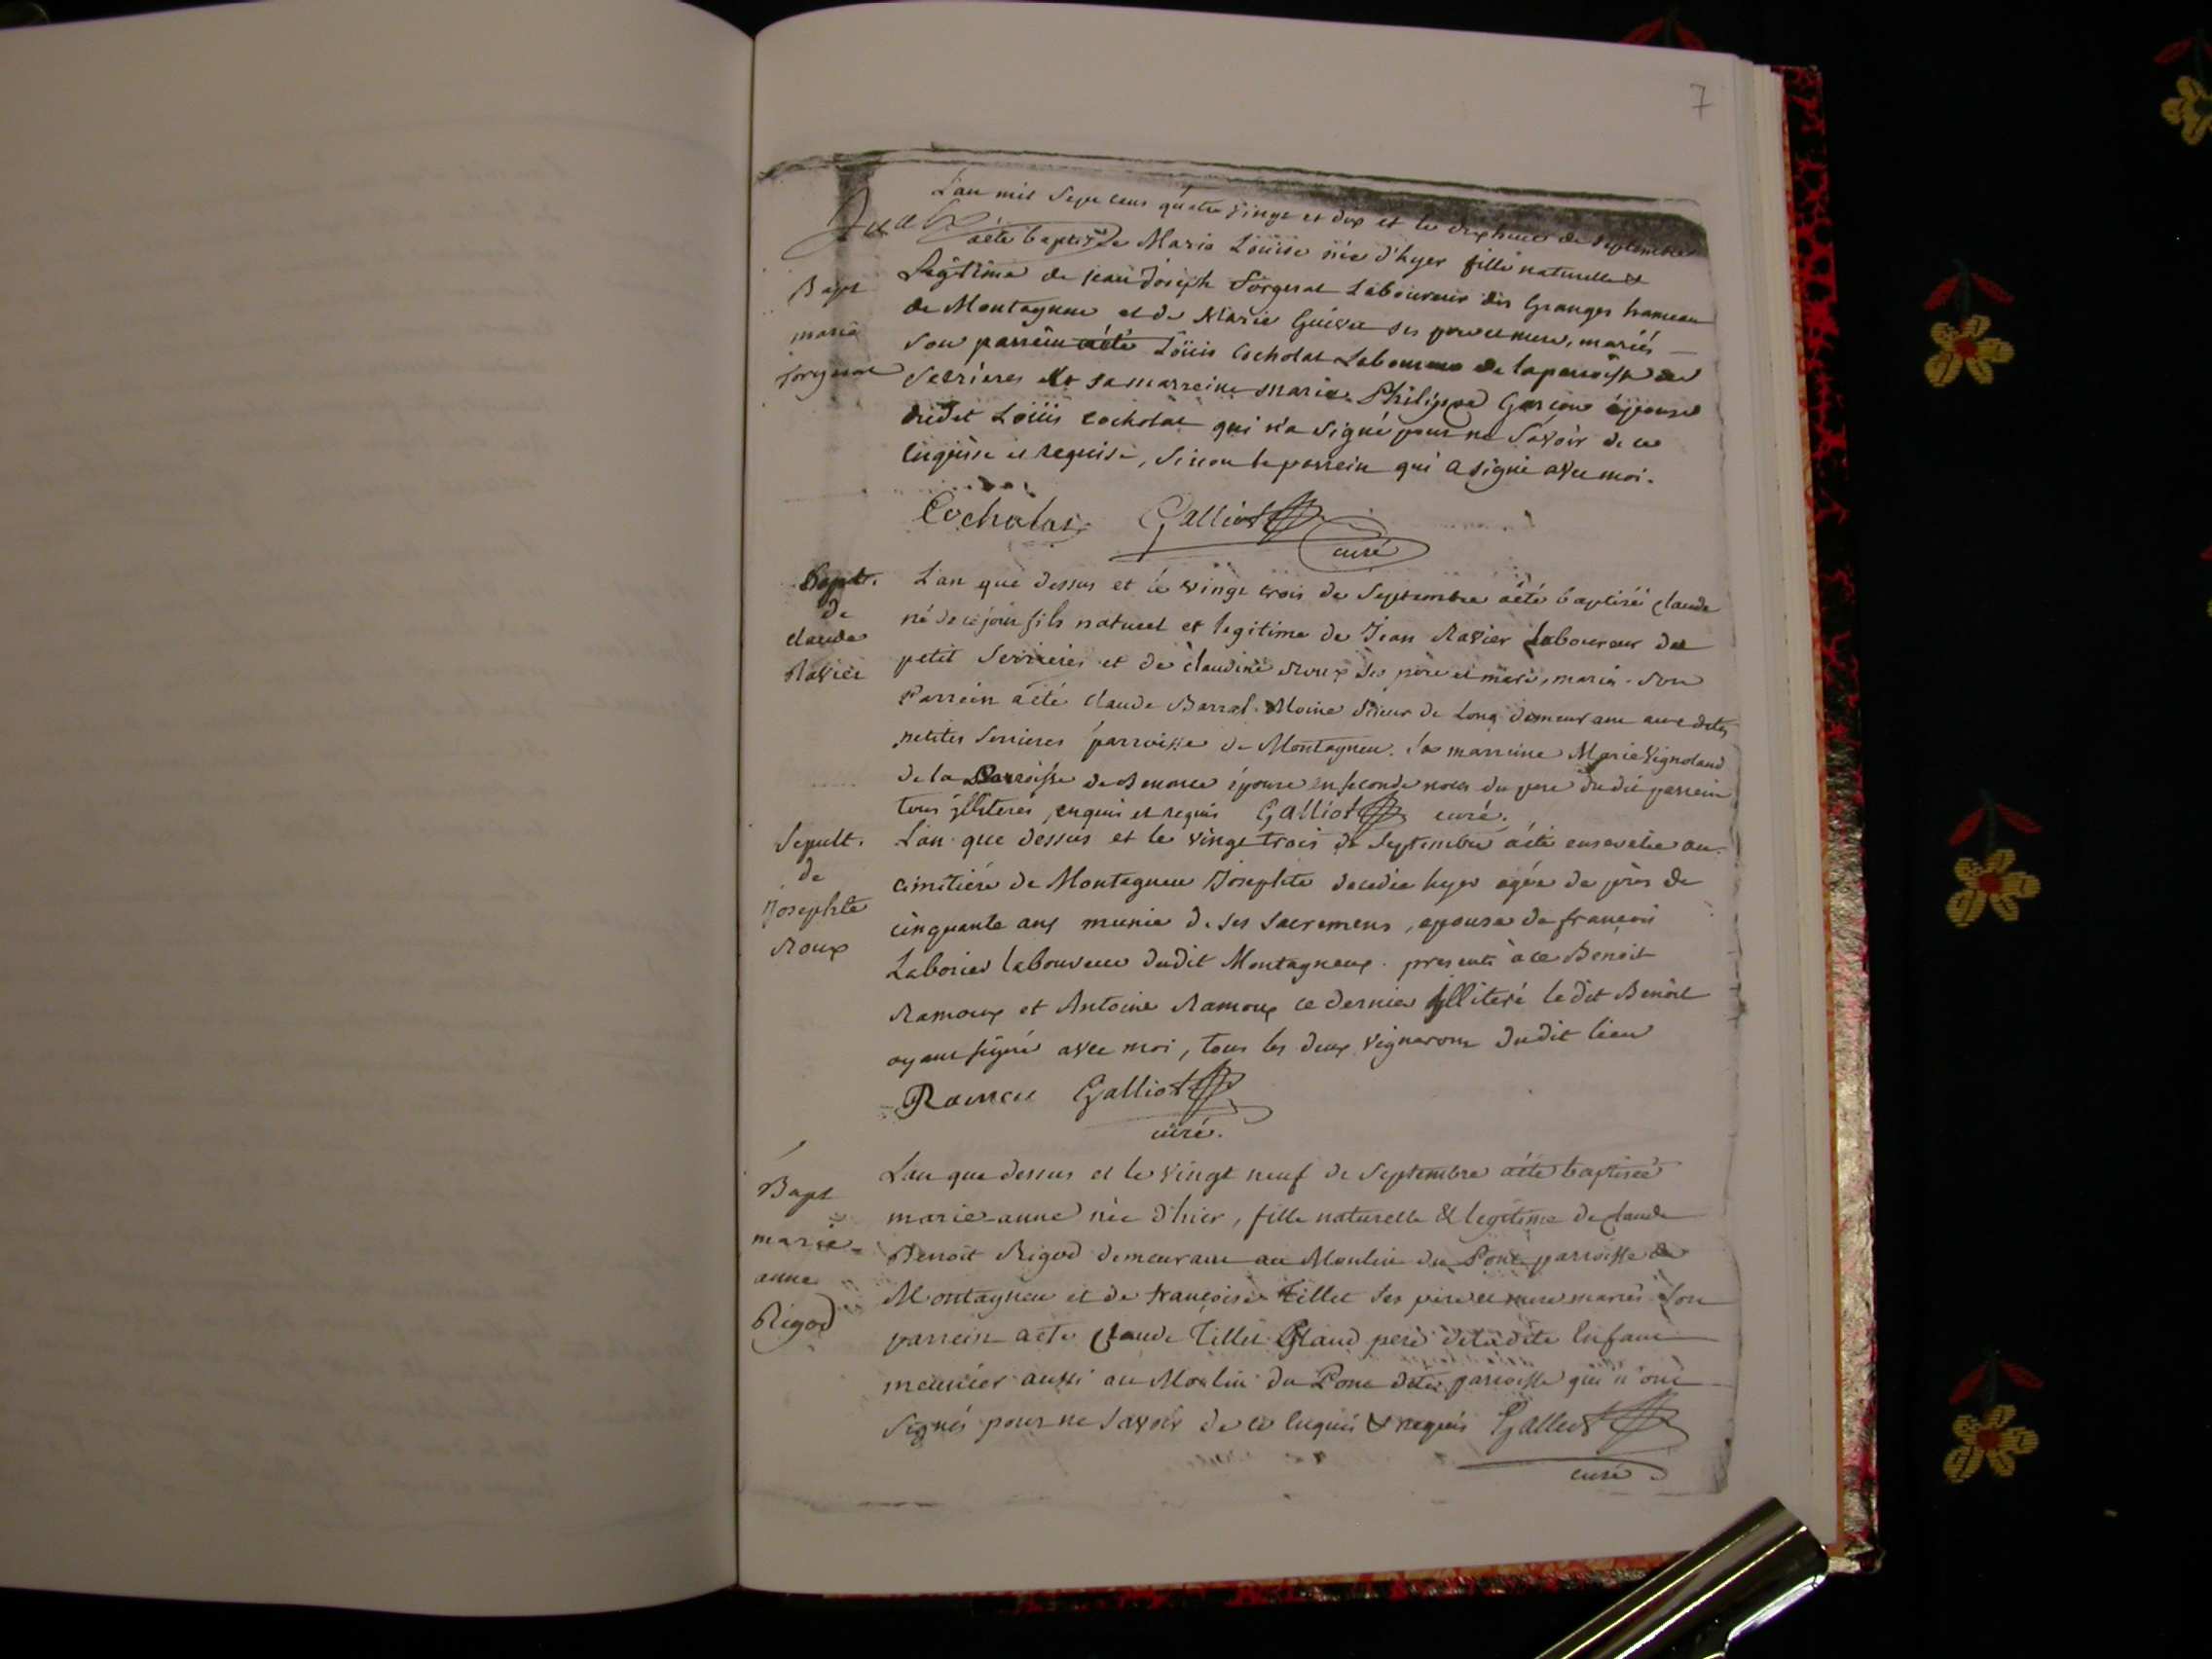 7
L'an mil sept cens quatre vingt et dix et le dix huit de septembre
aété baptisée Marie Loüise née d'hyer fille naturelle et
Bapt
Légitime de jean Joseph Sorgerat Laboureur des Granges hameau
de Montagneu et de Marie ses pere et mere, mariés
marie
son parrein aété Loüis Cocholat Laboureur de la parroisse de
Sorgerat
Serrieres et sa marreine marie Philippe Garçon épouse
dudit Loüis Cocholat qui n'a signé pour ne Savoir de ce
Enquise et requise, sinon le parrein qui a signé avec moi.
Cocholat Galliot
curé
Bapt. L'an que dessus et le vingt trois de Septembre aété baptisé claude
de
né de ce jour fils naturel et legitime de Jean Ravier laboureur de
claude
petit Serrieres et de claudine Roux ses père et mère, mariés. Son
Ravier
Parrein aété claude Barral Moine Scieur de Long demeurant auxdites
petites Serrieres parroisse de Montagneu. Sa marreine Marie Vignoland
de la Parroisse de épouse en seconde noces du pere dudit parrein
tous illiterés enquis et requis Galliot curé.
Sepult. L'an que dessus et le vingt trois de Septembre aété ensevelie au
de
cimitiére de Montagneu Josephte decedée hyer agée de près de
Josephte
cinquante ans munie de ses sacremens, epouse de françois
Roux
Laborier laboureur dudit Montagneux. presents à ce Benoit
Ramoux et Antoine Ramoux ce dernier illiteré ledit Benoit
ayant signé avec moi, tous les deux vignerons dudit lieu
Rameu Galliot
curé.
L'an que dessus et le vingt neuf de Septembre aété baptisée
Bapt
marie-anne née d'hier, fille naturelle & legitime de claude
marie-
Benoit Rigod demeurant au Moulin du Pont parroisse de
anne
Montagneu et de françoise Tillet ses père et mere mariés Son
Rigod
parrein aété Claude Tillet Grand pere deladite Enfant
meunier aussi au Moulin du Pont dite parroisse qui n'ont
signés pour ne savoir de ce Enquis & requis Galliot
curé